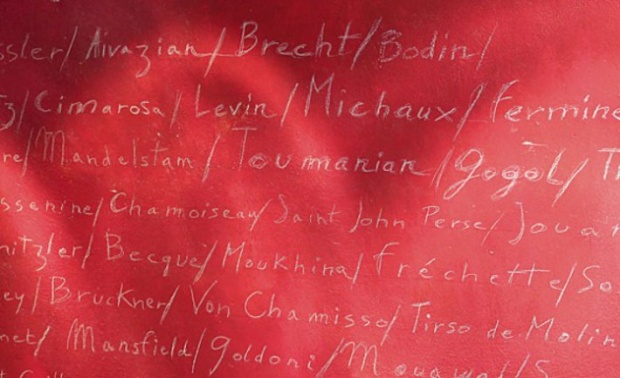 ssler/ Aivazian/ Brecht/ Bodin/
tz/ Cimarosa/ Levin/ Michaux/ Fermine
re/ Mandelstam/ Toumanian/ Gogol/ T
ssenine/ Chamoiseau/ Saint John Perse/ Jouan
nitzler/ Becque/ Moukhina/ Fréchette/ So
ey/ Bruckner/ Von Chamisso/ Tirso de Molin
net/ Mansfield/ Goldoni/ Mouawad/ S